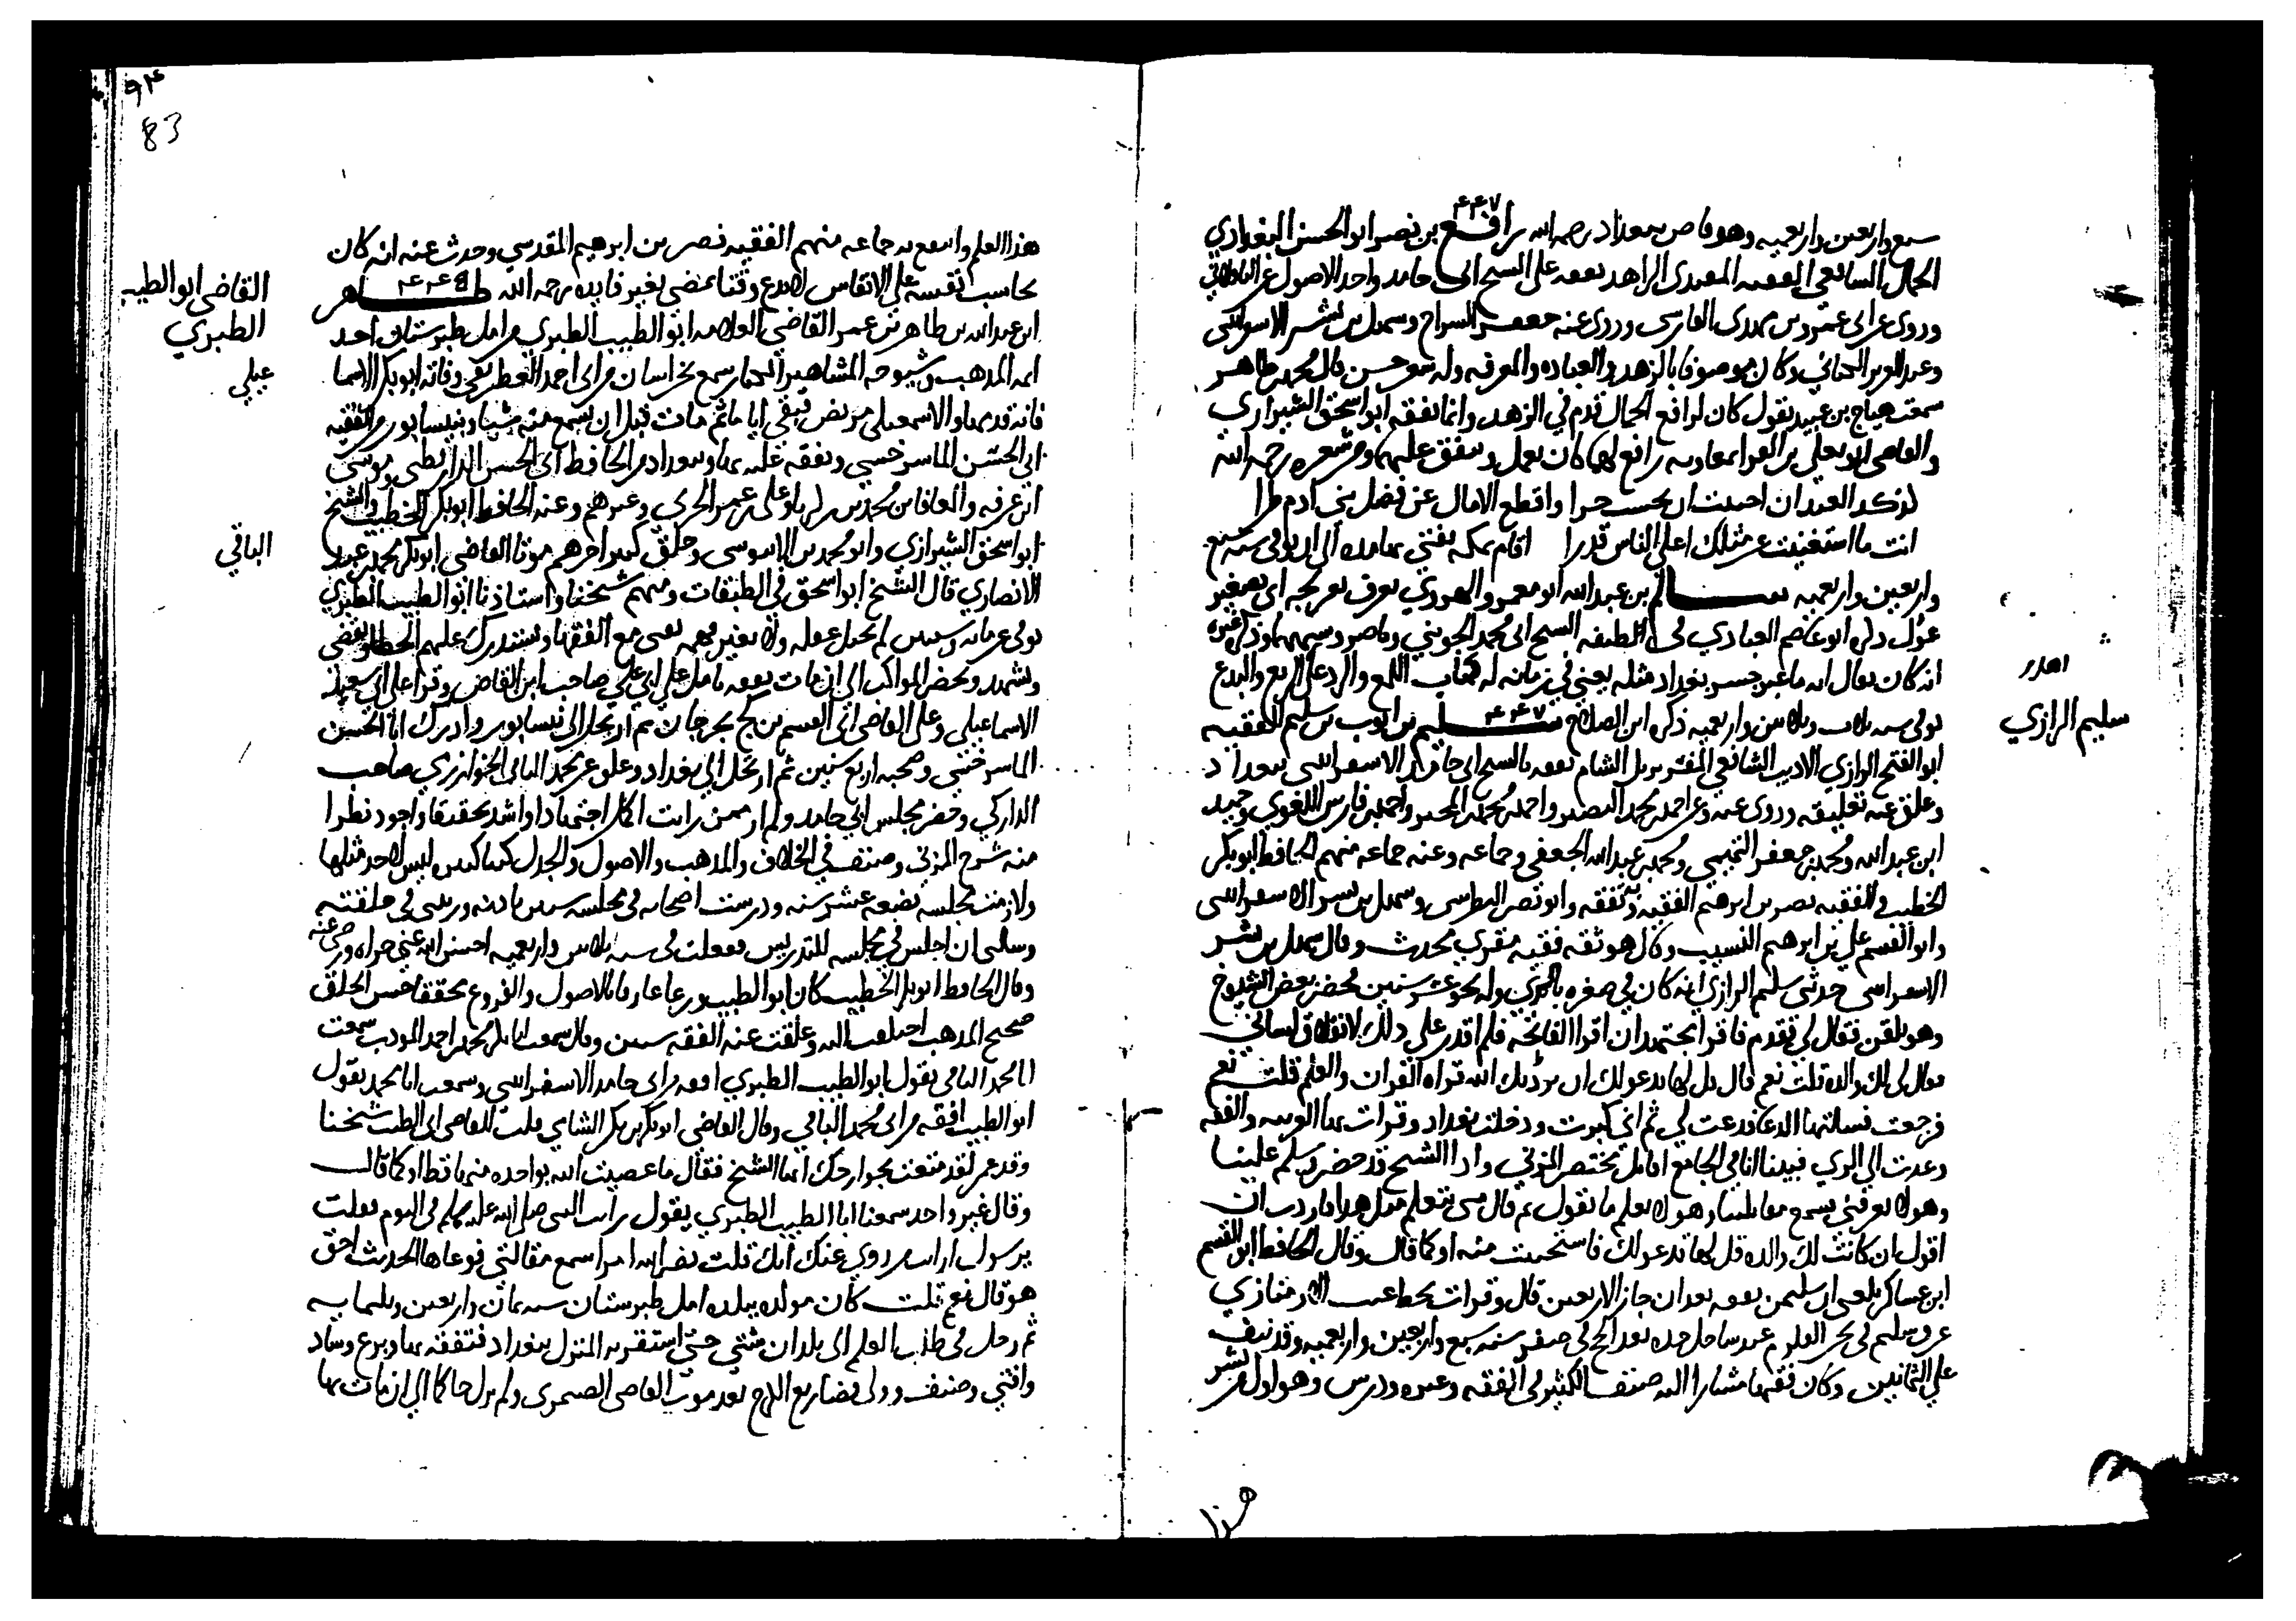 ٤٤٧
سبع واربعين واربعميه وهو قاض ببغداد رحمه الله رافع بن نصر ابو الحسن البغدادي
الحمال الشافعي الفقيه المفتي الزاهد تفقه على الشيخ ابي حامد واخذ الاصول عن الباقلاني
وروى عن ابي عمر بن مهدي الفارسي وروى عنه جعفر السراج وسهل بن بشر الاسفراييني
وعبد العزيز الكتاني وكان موصوفا بالزهد والعباده والمعرفه وله شعر حسن قال محمد بن طاهر
سمعت هياج بن عبيد يقول كان لرافع الحمال قدم في الزهد وانما تفقه ابو اسحق الشيرازي
والقاضي ابو يعلى بن الفرا بمعاونه رافع لهما كان يعمل وينفق عليهما ومن شعره رحمه الله
كد كد العبد ان احببت ان تحسب حرا واقطع الامال عن فضل بني ادم طرا
انت ما استغنيت عن مثلك اعلى الناس قدرا اقام بمكه يفتي بها مده الى ان توفي سنه سبع
واربعين واربعميه سالم بن عبد الله ابو معمر الهروي يعرف بغريجه اي بصغير
غول ذكره ابو عاصم العبادي في الطبقه الشيخ ابي محمد الجويني وناصر وشبههما وذكر غيره
انه كان يقال انه ما عبر جسر بغداد مثله يعني في زمانه له كتاب اللمع والرد على اهل الزيغ والبدع
توفي سنه ثلاث وثلاثين واربعميه ذكره ابن الصلاح سليم بن ايوب بن سليم الفقيه
٤٤٧
ابو الفتح الرازي الاديب الشافعي المفسر نزيل الشام تفقه بالشيخ ابي حامد الاسفراييني ببغداد
وعلق عنه تعليقه وروى عنه وعن احمد بن محمد البصير واحمد بن محمد المجبر واحمد بن فارس اللغوي وحمد
ابن عبد الله ومحمد بن جعفر التميمي ومحمد بن عبد الله الجعفي وجماعه وعنه جماعه منهم الحافظ ابو بكر
الخطيب والفقيه نصر بن ابرهيم الفقيه وبه تفقه وابو نصر الطرثيثي وسهل بن بشر الاسفراييني
وابو القسم علي بن ابرهيم النسيب وقال هو ثقه فقيه مقرئ محدث وقال سهل بن بشر
الاسفراييني حدثني سليم الرازي انه كان في صغره بالري وله نحو عشر سنين فحضر بعض الشيوخ
وهو يلقن فقال لي تقدم فاقرا فجتهد ان اقرا الفاتحه فلم اقدر على ذلك لانغلاق لساني
فقال لي لك والده قلت نعم قال قل لها تدعو لك ان يرزقك الله قراه القران والعلم قلت نعم
فرجعت فسالتها الدعا فدعت لي ثم اني كبرت ودخلت بغداد وقرات بها العربيه والفقه
وعدت الى الري فبينا انا في الجامع اقابل مختصر المزني واذا الشيخ قد حضر وسلم علينا
وهو لا يعرفني يسمع مقابلتنا وهو لا يعلم ما نقول ثم قال متى يتعلم مثل هذا فاردت ان
اقول ان كانت لك والده قل لها تدعو لك فاستحييت منه او كما قال وقال الحافظ ابو القسم
ابن عساكر بلغني ان سليما تفقه بعد ان جاز الاربعين قال وقرات بخط غيث الارمنازي
غرق سليم في بحر القلزم عند ساحل جده بعد الحج في صفر سنه سبع واربعين واربعميه وقد نيف
على الثمانين وكان فقيها مشارا اليه صنف الكثير في الفقه وغيره ودرس وهو اول من نشر
سليم الرازي
هذا
٩٤
83
هذا العلم وانتفع به جماعه منهم الفقيه نصر بن ابرهيم المقدسي وحدث عنه انه كان
يحاسب نفسه على الانفاس لا يدع وقتا يمضي بغير فايده رحمه الله طاهر
ابن عبد الله بن طاهر بن عمر القاضي العلامه ابو الطيب الطبري من امل طبرستان احد
ايمه المذهب وشيوخه المشاهير الكبار سمع بخراسان من ابي احمد الغطريفي وفاته ابو بكر الاسما
عيلي
فانه قدمها والاسمعيلي مريض فبقي اياما ثم مات قبل ان يسمع منه شيا وبنيسابور من الفقيه
ابي الحسن الماسرخسي وتفقه عليه بها وببغداد من الحافظ ابي الحسن الدارقطني وموسى
ابن عرفه والمعافا بن زكريا وعلي بن عمر الحربي وغيرهم وعنه الحافظ ابو بكر الخطيب والشيخ
ابو اسحق الشيرازي وابو محمد بن الابنوسي وخلق كثير اخرهم موتا القاضي ابو بكر محمد بن عبد
الباقي
الانصاري قال الشيخ ابو اسحق في الطبقات ومنهم شيخنا واستاذنا ابو الطيب الطبري
توفي عن مايه وسنتين لم يختل عقله ولا تغير فهمه يفتي مع الفقها ويستدرك عليهم الخطا ويقضي
ويشهد ويحضر المواكب الى ان مات تفقه بامل على ابي علي صاحب ابن القاص وقرا على ابي سعد
الاسماعيلي وعلى القاضي ابي القسم بن كج بجرجان ثم ارتحل الى نيسابور وادرك ابا الحسن
الماسرخسي وصحبه اربع سنين ثم ارتحل الى بغداد وعلق عن محمد البافي الخوارزمي صاحب
الداركي وحضر مجلس ابي حامد ولم ار ممن رايت اكمل اجتهادا واشد تحقيقا واجود نظرا
منه شرح المزني وصنف في الخلاف والمذهب والاصول والجدل كتبا كثيره ليس لاحد مثلها
ولازمت مجلسه بضعه عشر سنه ودرست اصحابه في مجلسه سنين باذنه ورتبني في حلقته
وسالني ان اجلس في مجلسه للتدريس ففعلت في سنه ثلاثين واربعميه احسن الله عني جزاه ورضي عنه
وقال الحافظ ابو بكر الخطيب كان ابو الطيب ورعا عارفا بالاصول والفروع محققا حسن الخلق
صحيح المذهب اختلفت اليه وعلقت عنه الفقه سنين وقال سمعت ابا بكر محمد بن احمد المودب سمعت
ابا محمد البافي يقول ابو الطيب الطبري افقه من ابي حامد الاسفراييني وسمعت ابا محمد يقول
ابو الطيب افقه من ابي محمد البافي وقال القاضي ابو بكر بن بكر الشامي قلت للقاضي ابي الطيب شيخنا
وقد عمر لقد متعت بجوارحك ايها الشيخ فقال ما عصيت الله بواحده منها قط او كما قال
وقال غير واحد سمعنا ابا الطيب الطبري يقول رايت النبي صلى الله عليه وسلم في النوم فقلت
يرسول الله ارايت من روى عنك انك قلت نضر الله امرا سمع مقالتي فوعاها الحديث احق
هو قال نعم قلت كان مولده ببلده امل طبرستان سنه ثمان واربعين وثلثمايه
ثم رحل في طلب العلم الى بلدان شتى حتى استقر به المنزل ببغداد فتفقه بها وبرع وساد
وافتى وصنف وولي قضا ربع الكرخ بعد موت القاضي الصيمري ولم يزل حاكما الى ان مات بها
القاضي ابو الطيب
الطبري